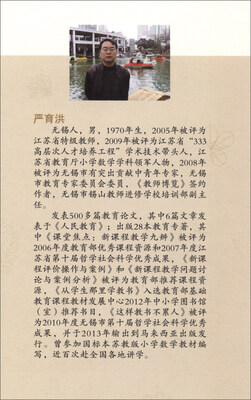 严育洪
无锡人，男，1970年生，2005年被评为
江苏省特级教师，2009年被评为江苏省“333
高层次人才培养工程”学术技术带头人，江
苏省教育厅小学数学学科领军人物，2008年
被评为无锡市有突出贡献中青年专家，无锡
市教育专家委员会委员，《教师博览》签约
作者，无锡市锡山教师进修学校培训部副主
任。
发表500多篇教育论文，其中6篇文章发
表于《人民教育》；出版28本教育专著，其
中《课堂焦点：新课程教学九辩》被评为
2006年度教育部优秀课程资源和2007年度江
苏省第十届哲学社会科学优秀成果，《新课
程评价操作与案例》和《新课程教学问题讨
论与案例分析》被评为教育部推荐课程资
源，《从学生那里学教书》入选教育部基础
教育课程教材发展中心2012年中小学图书馆
（室）推荐书目，《这样教书不累人》被评
为2010年度无锡市第十届哲学社会科学优秀
成果，并于2013年输出到马来西亚出版发
行。曾参加国标本苏教版小学数学教材编
写，近百次赴全国各地讲学。